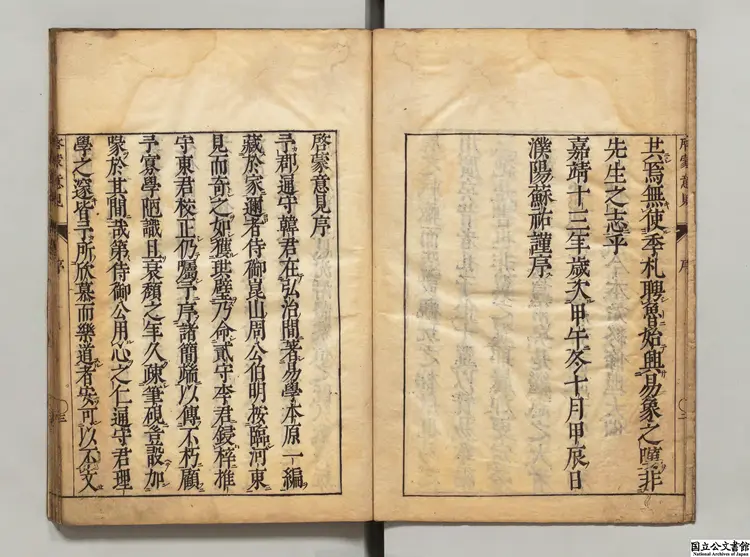 啓蒙意見 序
共焉無使季札聘魯始興易象之嘆非
先生之志乎
嘉靖十三年歲次甲午冬十月甲辰日
濮陽蘇祐謹序
啓蒙意見序
予郡通守韓君在弘治間著易學本原一編
藏於家邇者侍御崑山周公伯明按臨河東
見而奇之如獲珙璧乃命貳守李君鋟梓推
守東君校正仍囑予序諸簡端以傳不朽顧
予寡學陋識且衰頹之年久疎筆硯豈敢加
喙於其間哉第侍御公用心之仁通守君理
學之邃皆予所欣慕而樂道者安可以不文
啓蒙意見 序 三
国立公文書館
National Archives of Japan